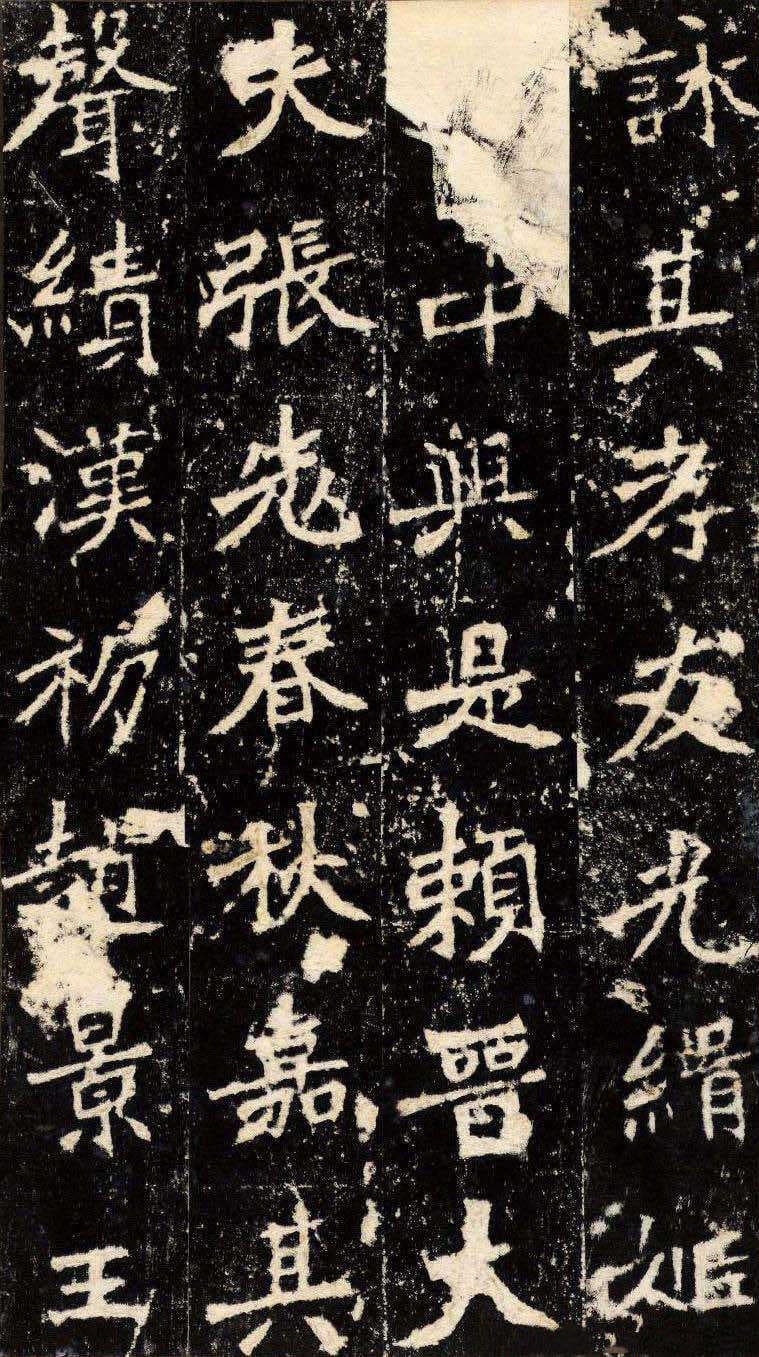 詠其孝友光緝
中興是賴晉大
夫張老春秋嘉其
聲績漢初趙景王